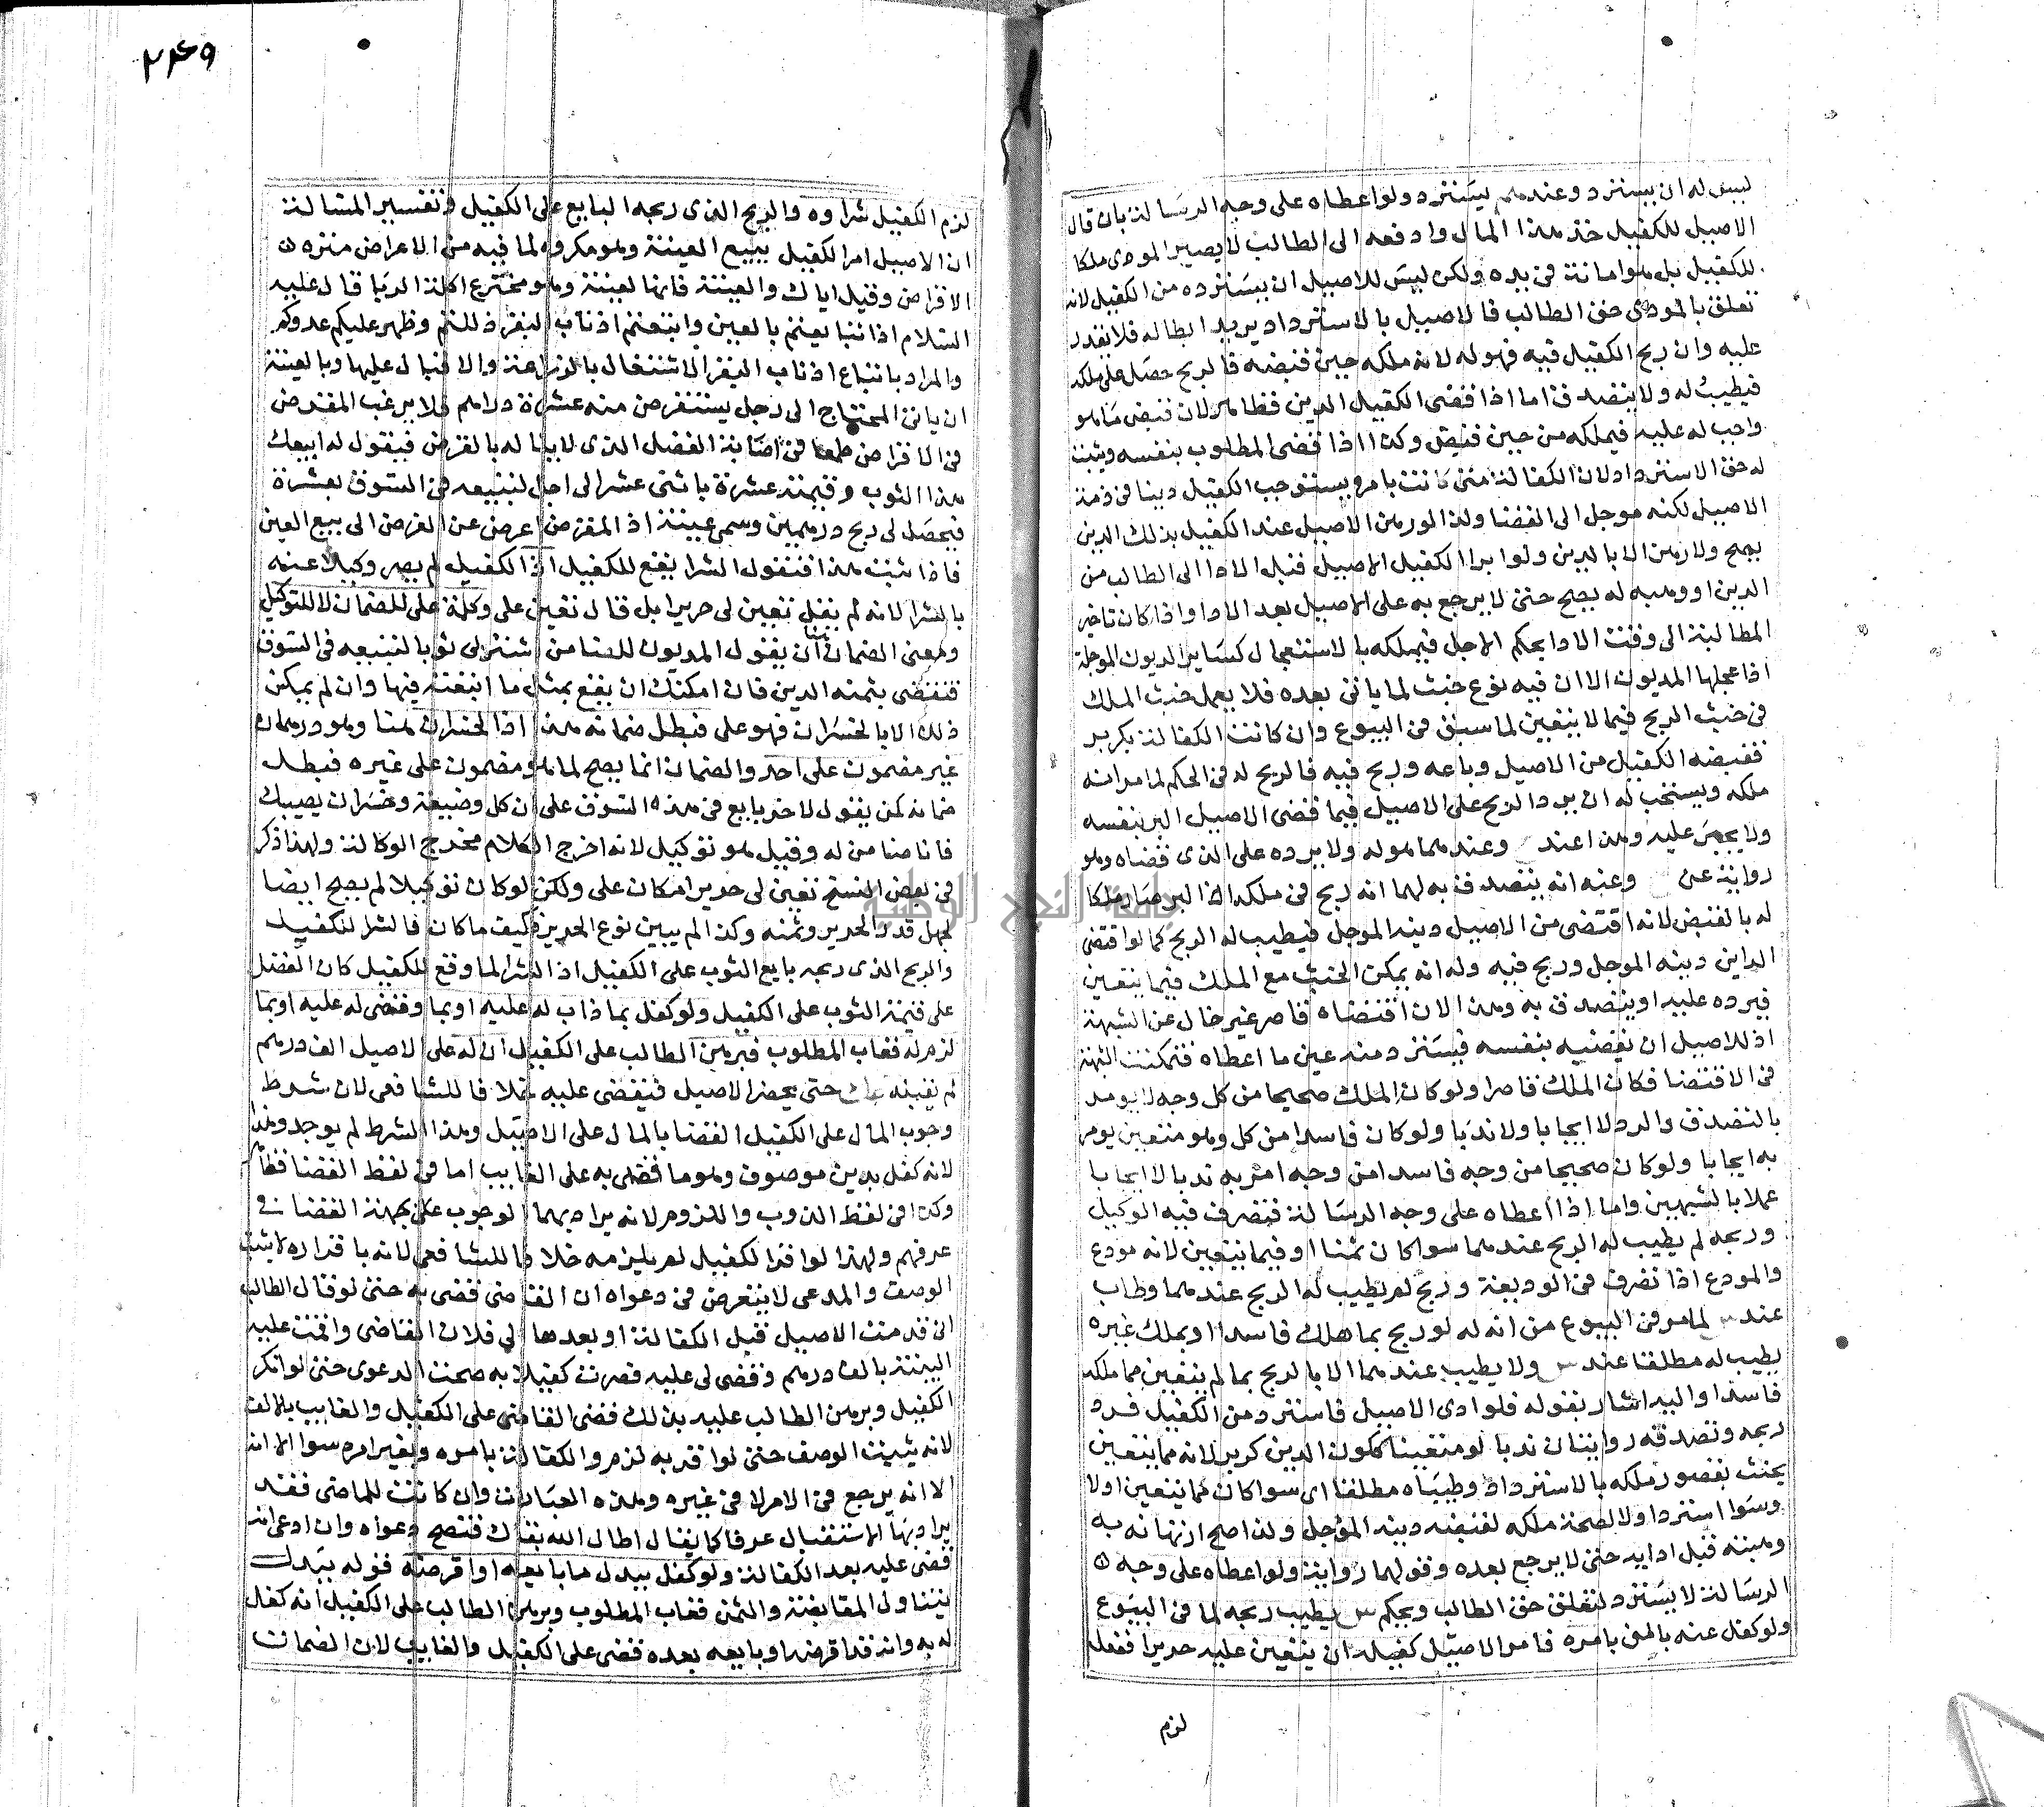 ليس له ان يسترد وعندهم يسترد ولو اعطاه على وجه الرسالة بان قال
الاصيل للكفيل خذ هذا المال وادفعه الى الطالب لا يصير المودى ملكا
للكفيل بل هو امانة في يده ولكن ليس للاصيل ان يسترده من الكفيل لانه
تعلق بالمودى حق الطالب فالاصيل بالاسترداد يريد ابطاله فلا يقدر
عليه وان ربح الكفيل فيه فهو له لانه ملكه حين قبضه فالربح حصل على ملكه
فيطيب له ولا يتصدق اما اذا قضى الكفيل الدين فظاهر لان قبض ما هو
واجب له عليه فيملكه من حين قبض وكذا اذا قضى المطلوب بنفسه ويثبت
له حق الاسترداد لان الكفالة متى كانت بامره يستوجب الكفيل دينا في ذمة
الاصيل لكنه موجل الى القضا ولذا لو رهن الاصيل عند الكفيل بذلك الدين
يصح ولا رهن الا بالدين ولو ابرا الكفيل الاصيل قبل الادا الى الطالب من
الدين او وهبه له يصح حتى لا يرجع به على الاصيل بعد الادا واذا كان تاخير
المطالبة الى وقت الادا بحكم الاجل فيملكه بالاستعجال كساير الديون الموجلة
اذا عجلها المديون الا ان فيه نوع خبث لما ياتى بعده فلا يعمل خبث الملك
في خبث الربح فيما لا يتعين لما سبق في البيوع وان كانت الكفالة بكر بر
فقبضه الكفيل من الاصيل وباعه وربح فيه فالربح له في الحكم لما مر انه
ملكه ويستحب له ان يرد الربح على الاصيل فيما قضى الاصيل البر بنفسه
ولا يجبر عليه وهذا عند وعندهما هو له ولا يرده على الذى قضاه وهو
رواية عن وعنه انه يتصدق به لهما انه ربح في ملكه اذ البر صار ملكا
له بالقبض لانه اقتضى من الاصيل دينه الموجل فيطيب له الربح كما لو اقتضى
الداين دينه الموجل وربح فيه وله انه يمكن الخبث مع الملك فيما يتعين
فيرده عليه او يتصدق به وهذا لان اقتضاه قاصر غير خال عن الشبهة
اذ للاصيل ان يقضيه بنفسه فيسترد منه عين ما اعطاه فتمكنت الشبهة
في الاقتضا فكان الملك قاصرا ولو كان الملك صحيحا من كل وجه لا يومر
بالتصدق والرد لا ايجابا ولا ندبا ولو كان فاسدا من كل وهو متعين يومر
به ايجابا ولو كان صحيحا من وجه فاسدا من وجه امر به ندبا لا ايجابا
عملا بالشبهين واما اذا اعطاه على وجه الرسالة فتصرف فيه الوكيل
وربحه لم يطيب له الربح عندهما سوا كان ثمنا او فيما يتعين لانه مودع
والمودع اذا تصرف في الوديعة وربح لم يطيب له الربح عندهما وطاب
عند لما مر في البيوع من انه له لو ربح بما هلك فاسدا او بملك غيره
يطيب له مطلقا عند ولا يطيب عندهما الا بالربح بما لم يتعين مما ملكه
فاسدا واليه اشار بقوله فلو ادى الاصيل فاسترد من الكفيل فرد
ربحه وتصدقه روايتان ندبا لو متعينا ككون الدين كر بر لانه مما يتعين
يخبث بقصور ملكه بالاسترداد وطيباه مطلقا اى سوا كان مما يتعين اولا
وسوا استرد اولا لصحة ملكه لقبضه دينه المؤجل ولذا صح ارتهانه به
وهبته قبل ادايه حتى لا يرجع بعده وقولهما رواية ولو اعطاه على وجه
الرسالة لا يسترد لتعلق حق الطالب ويحكم يطيب ربحه لما في البيوع
ولو كفل عنه بالمن بامره فامر الاصيل كفيله ان يتعين عليه حريرا ففعله
لزم
٢٤٩
لزم الكفيل شراوه والربح الذى ربحه البايع على الكفيل وتفسير المسالة
ان الاصيل امر الكفيل ببيع العينة وهو مكروه لما فيه من الاعراض منزه
الاقراض وقيل اياك والعينة فانها لعينة وهو مخترع اكلة الربا قال عليه
السلام اذا تبايعتم بالعين واتبعتم اذناب البقر ذللتم وظهر عليكم عدوكم
والمراد باتباع اذناب البقر الاشتغال بالزراعة والاقبال عليها وبالعينة
ان ياتى المحتاج الى رجل يستقرض منه عشرة دراهم فلا يرغب المقرض
في الاقراض طمعا في اصابة الفضل الذى لا يناله بالقرض فيقول له ابيعك
هذا الثوب وقيمته عشرة باثنى عشر الى اجل لتبيعه في السوق بعشرة
فيحصل لى ربح درهمين وسمى عينة اذ المقرض اعرض عن القرض الى بيع العين
فاذا ثبت هذا فنقول الشرا يقع للكفيل اذ الكفيل لم يصر وكيلا عنه
بالشرا لانه لم يقل تعين لى حريرا بل قال تعين على وكلمة على للضمان لا للتوكيل
ومعنى الضمان هنا ان يقول المديون للضامن اشتر لى ثوبا لتبيعه في السوق
فتقضى بثمنه الدين فان امكنك ان يقع بمثل ما ابتعته فيها وان لم يمكن
ذلك الا بالخسران فهو على فبطل ضمانه هذا اذ الخسران هنا وهو درهمان
غير مضمون على احد والضمان انما يصح لما هو مضمون على غيره فبطل
ضمانه كمن يقول لاخر بايع في هذه السوق على ان كل وضيعة وخسران يصيبك
فانا ضامن له وقيل هو توكيل لانه اخرج الكلام مخرج الوكالة ولهذا ذكر
في بعض النسخ تعين لى حريرا مكان على ولكن لو كان توكيلا لم يصح ايضا
لجهل قدر الحرير وثمنه وكذا لم يبين نوع الحرير فكيف ما كان فالشرا للكفيل
والربح الذى ربحه بايع الثوب على الكفيل اذ الشرا لما وقع للكفيل كان الفضل
على قيمة الثوب على الكفيل ولو كفل بما ذاب له عليه او بما وقضى له عليه او بما
لزم له فغاب المطلوب فبرهن الطالب على الكفيل ان له على الاصيل الف درهم
لم يقبل حتى يحضر الاصيل فيقضى عليه خلافا للشافعى لان شرط
وجوب المال على الكفيل القضا بالمال على الاصيل وهذا الشرط لم يوجد وهذا
لانه كفل بدين موصوف وهو ما قضى به على الغايب اما في لفظ القضا فظاهر
وكذا في لفظ الذوب واللزوم لانه يراد بهما الوجوب على بجهة القضا في
عرفهم ولهذا لو اقر الكفيل لم يلزمه خلافا للشافعى لانه باقراره لا يثبت
الوصف والمدعى لا يتعرض في دعواه ان القاضى قضى به حتى لو قال الطالب
انى قدمت الاصيل قبل الكفالة او بعدها الى فلان القاضى واقمت عليه
البينة بالف درهم وقضى لى عليه فصرت كفيلا به صحت الدعوى حتى لو انكر
الكفيل وبرهن الطالب عليه بذلك قضى القاضى على الكفيل والغايب بالالف
لانه يثبت الوصف حتى لو اقر به لزم والكفالة بامره وبغير امره سوا الا انه
الا انه يرجع في الامر لا في غيره وهذه العبارات وان كانت للماضى فقد
يراد بها الاستقبال عرفا كما يقال اطال الله بقاك فتصح دعواه وان ادعى انه
قضى عليه بعد الكفالة ولو كفل ببدل ما بايعه او اقرضه فقوله ببدل
يتناول المقايضة والثمن فغاب المطلوب وبرهن الطالب على الكفيل انه كفل
له به وانه قد اقرضه او بايعه بعده قضى على الكفيل والغايب لان الضمان
جامعة النجاح الوطنية